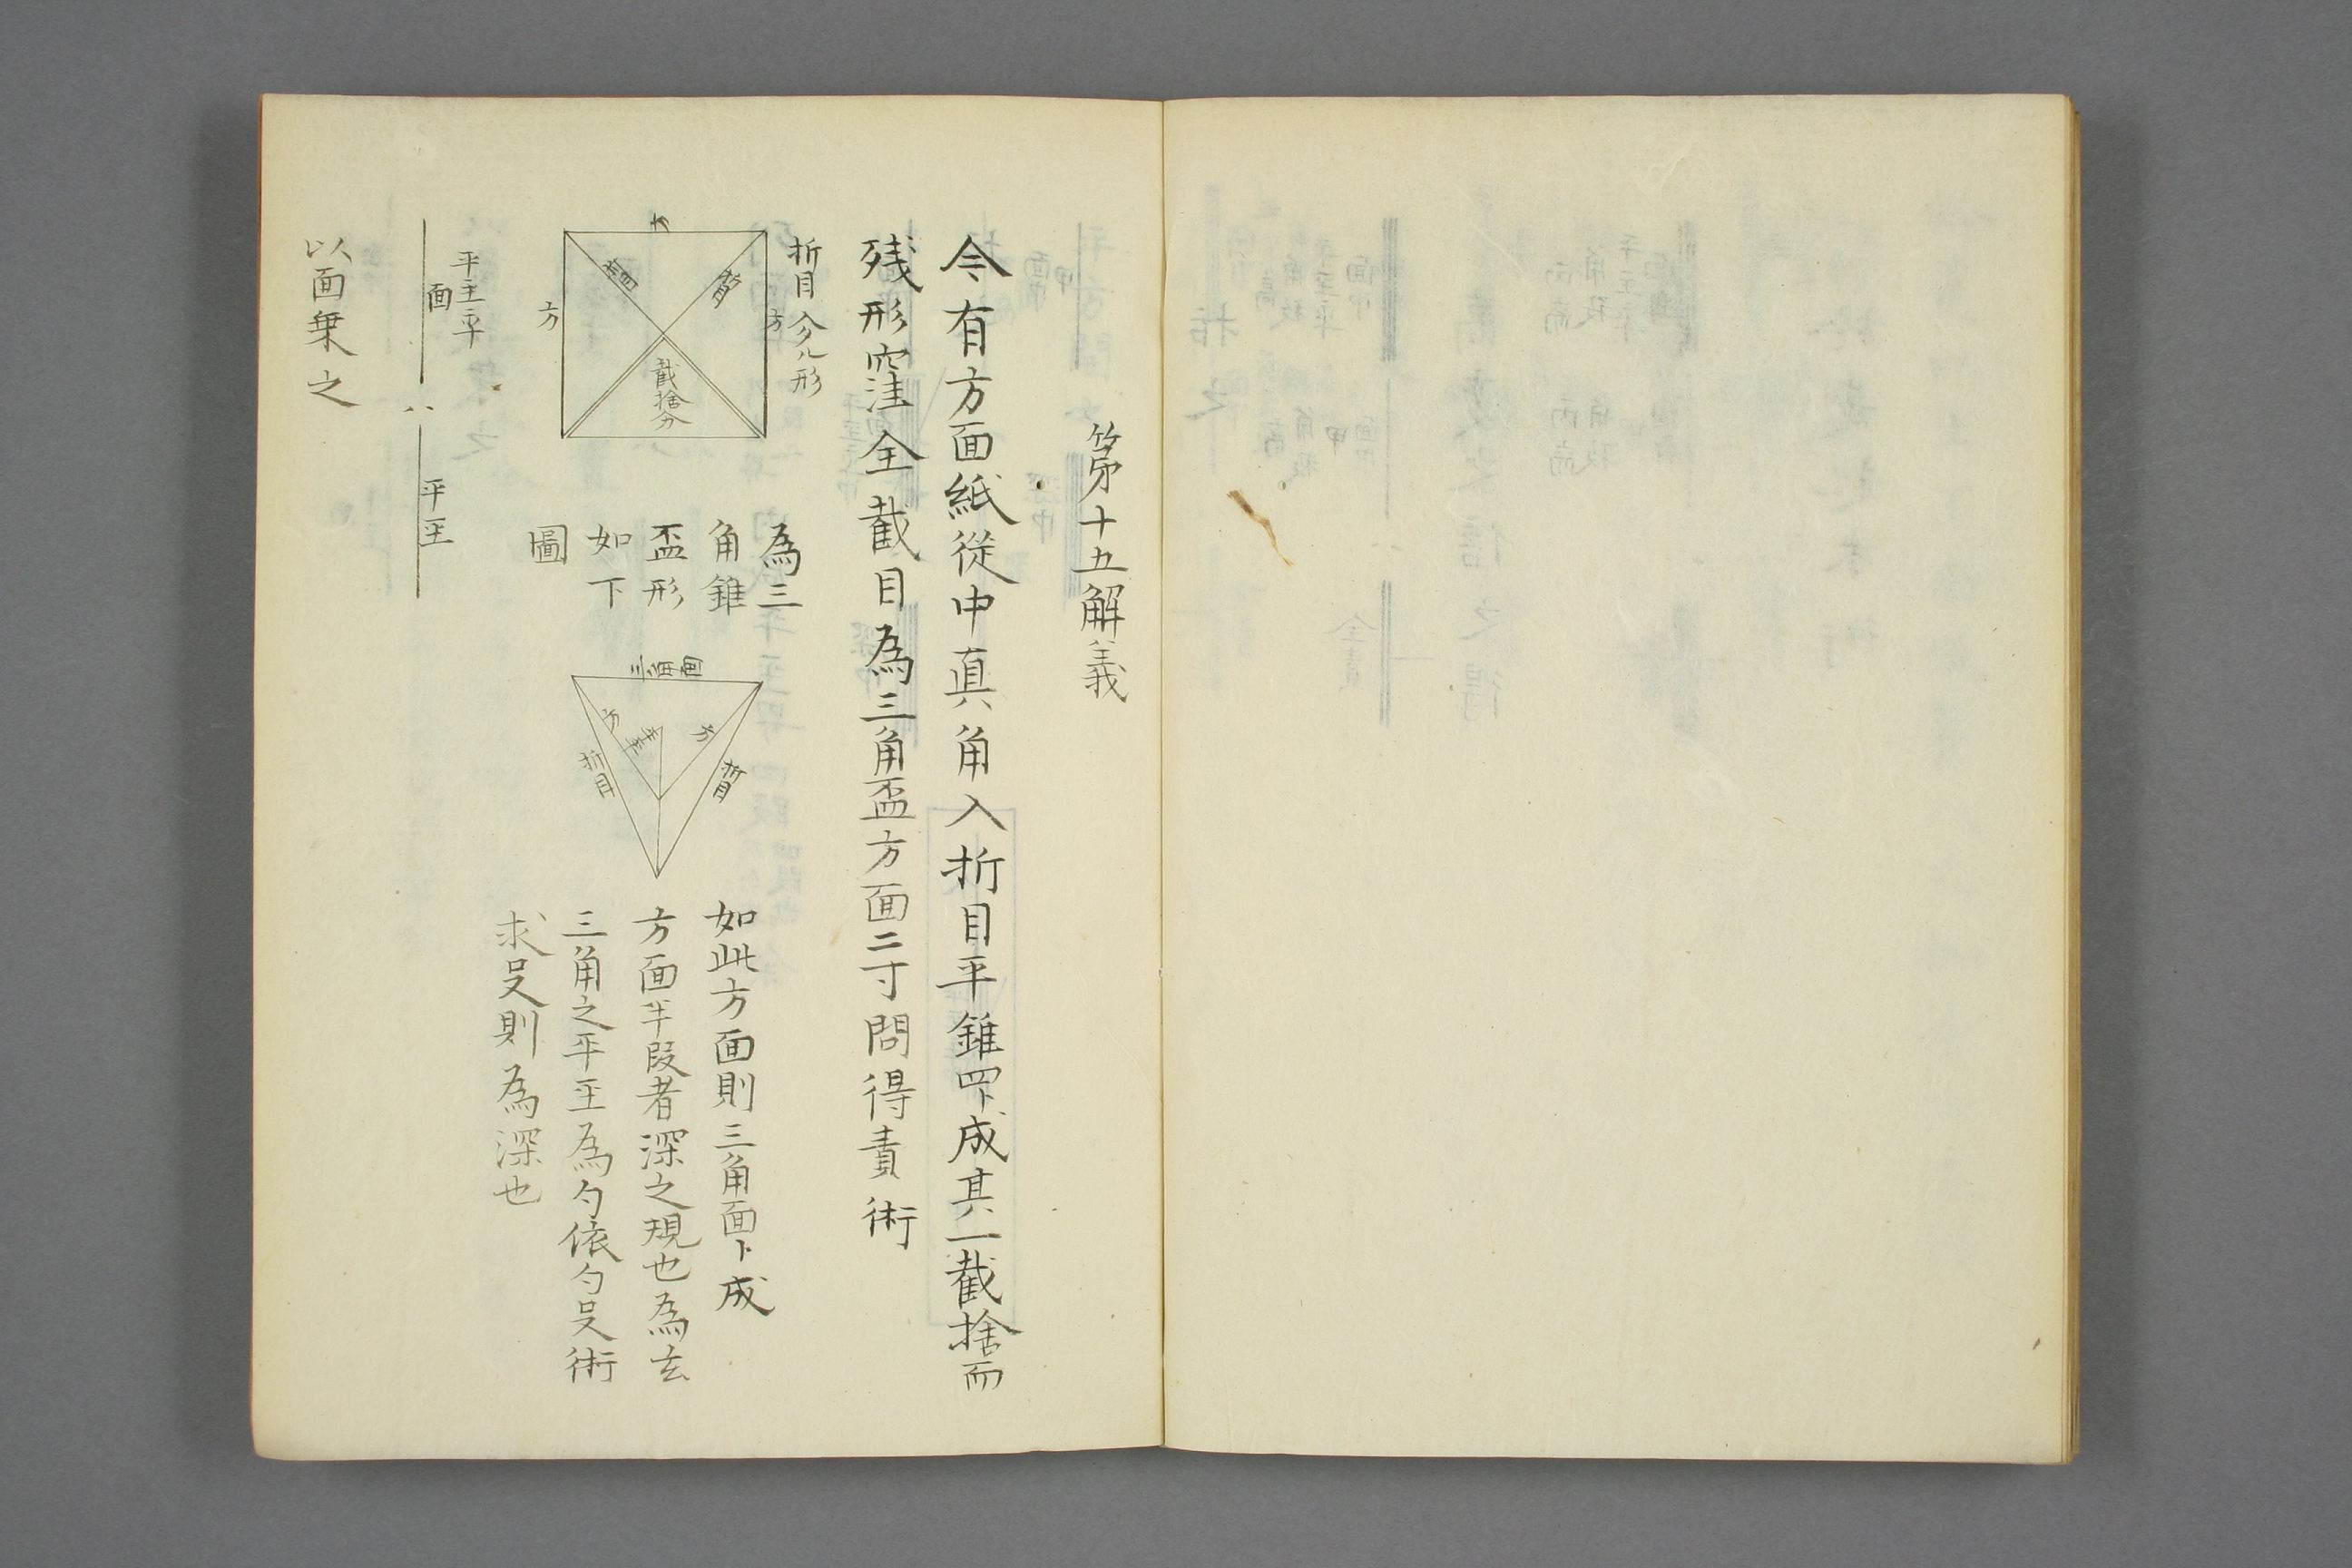 第十五解義
今有方面紙従中真角入折目平錐四ト成其一截捨而
残形窪全截目為三角盃方面二寸問得責術
折目入タル形
方
方
方
折目
折目
截捨分
為三
角錐
盃形
如下
圖
三角面
方
方
平玄
折目
折目
如此方面則三角面ト成
方面半段者深之規也為玄
三角之平玄為勺依勺㕝術
求㕝則為深也
平玄平
面
平玄
以面乗之